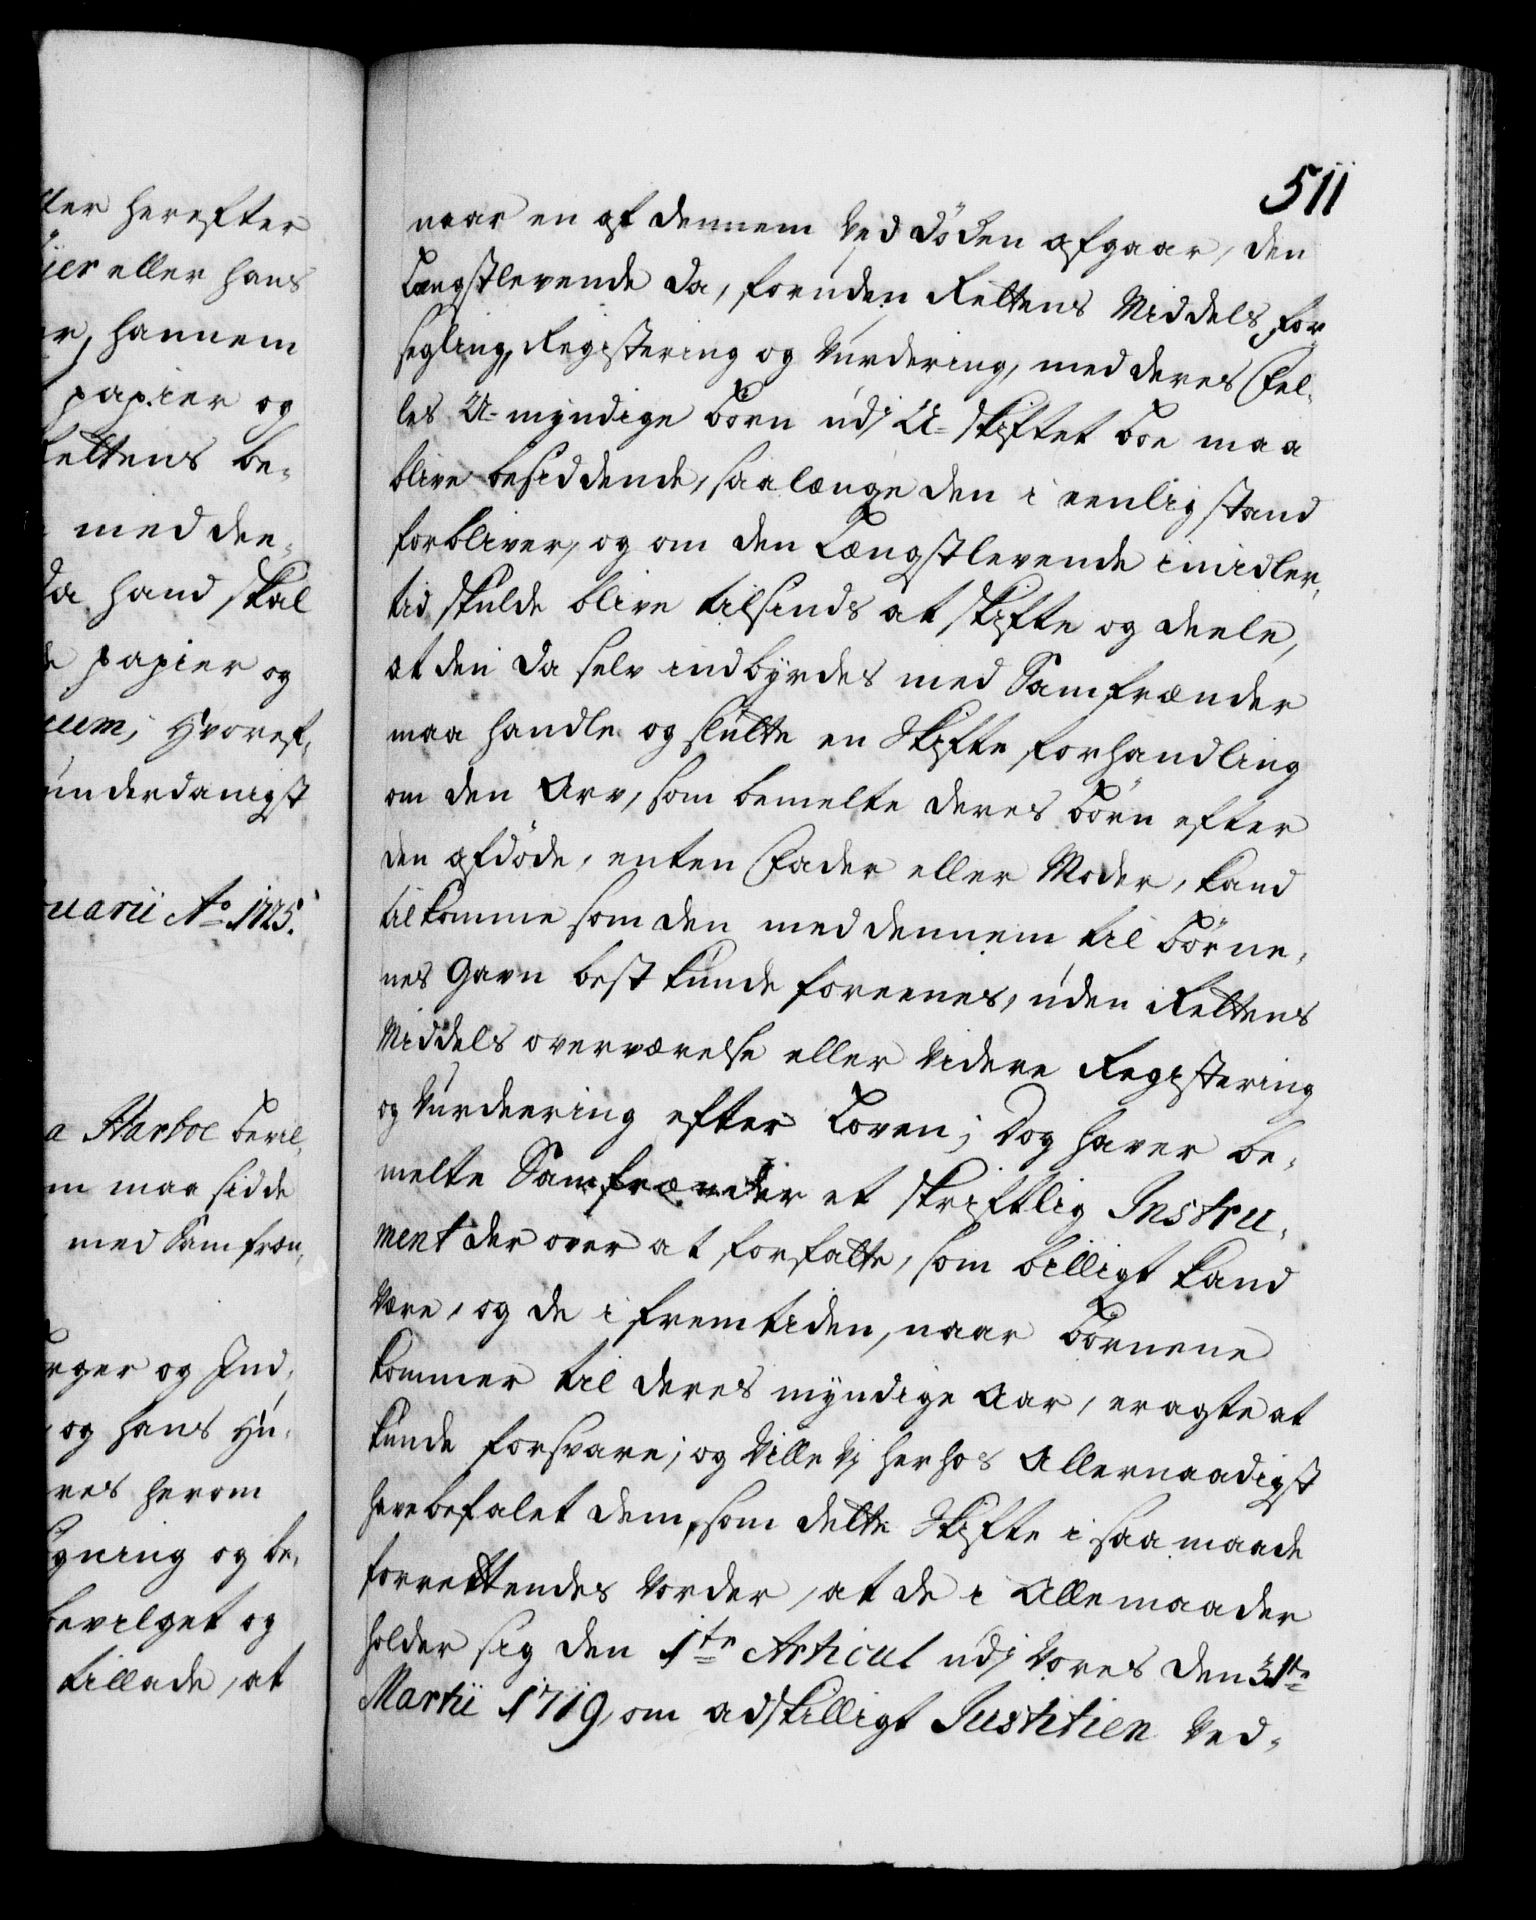 511
naar en af dennem ved Döden afgaar, den
Længstlevende da, foruden Rettens Middels For,
segling, Registering og Vurdering, med deres Fel,
les U-myndige Börn udj U-skiftet Boe maa
blive besiddende, saalænge den i eenlig stand
forbliver, og om den Længstlevende imidler,
tid skulde blive tilsinds at skifte og deele,
at den da selv indbyrdes med Samfrænder
maa handle og slutte en Skifte forhandling
om den Arv, som bemelte deres Börn efter
den afdöde, enten Fader eller Moder, kand
tilkomme som den med dennem til Börne,
nes Gavn best kunde foreenes, uden Rettens
Middels overværelse eller videre Registering
og Vurdeering efter Loven; Dog haver be,
melte Samfrænder et skriftlig Instru,
ment der over at forfatte, som billigt kand
være, og de i fremtiden, naar Börnene
kommer til deres myndige Aar, eragte at
kunde forsvare; og Ville Vj herhos Allernaadigst
have befalet dem, som dette Skifte i saa maade
forrettendes vorder, at de i Alle maader
holder sig den 1te Articul udj Vores den 31te
Martii 1719, om adskilligt Justitien ved,
ter herefter
ÿer eller hans
r, hannem
papier og
Rettens be,
med den,
da hand skal
de papier og
cum, hvoref,
underdanigst
uarii Ao. 1725.
a Harboe bevil,
m maa sidde
med Samfræn,
rger og Ind,
og hans Hu,
res herom
gning og be,
bevilget og
tillade, at